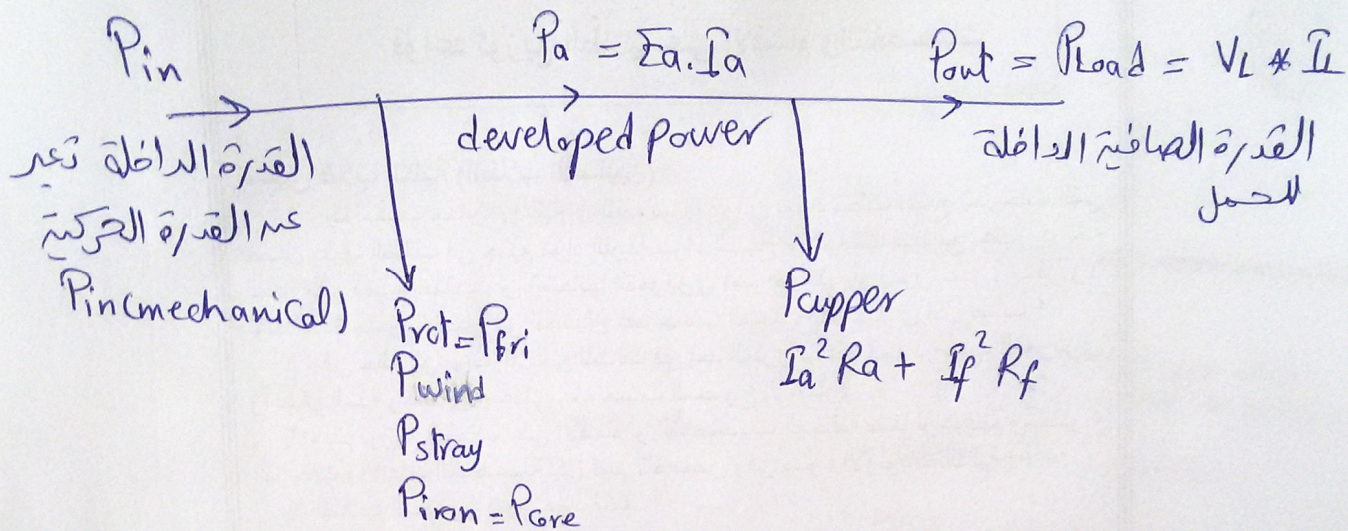 Pin
Pa = Ea.Ia
Pout = PLoad = VL * IL
القدرة الداخلة تعبر
عن القدرة الحركية
Pin(mechanical)
developed power
القدرة الصافية الداخلة
للحمل
Prot = Pfri
Pwind
Pstray
Piron = Pcore
Pcupper
Ia² Ra + If² Rf